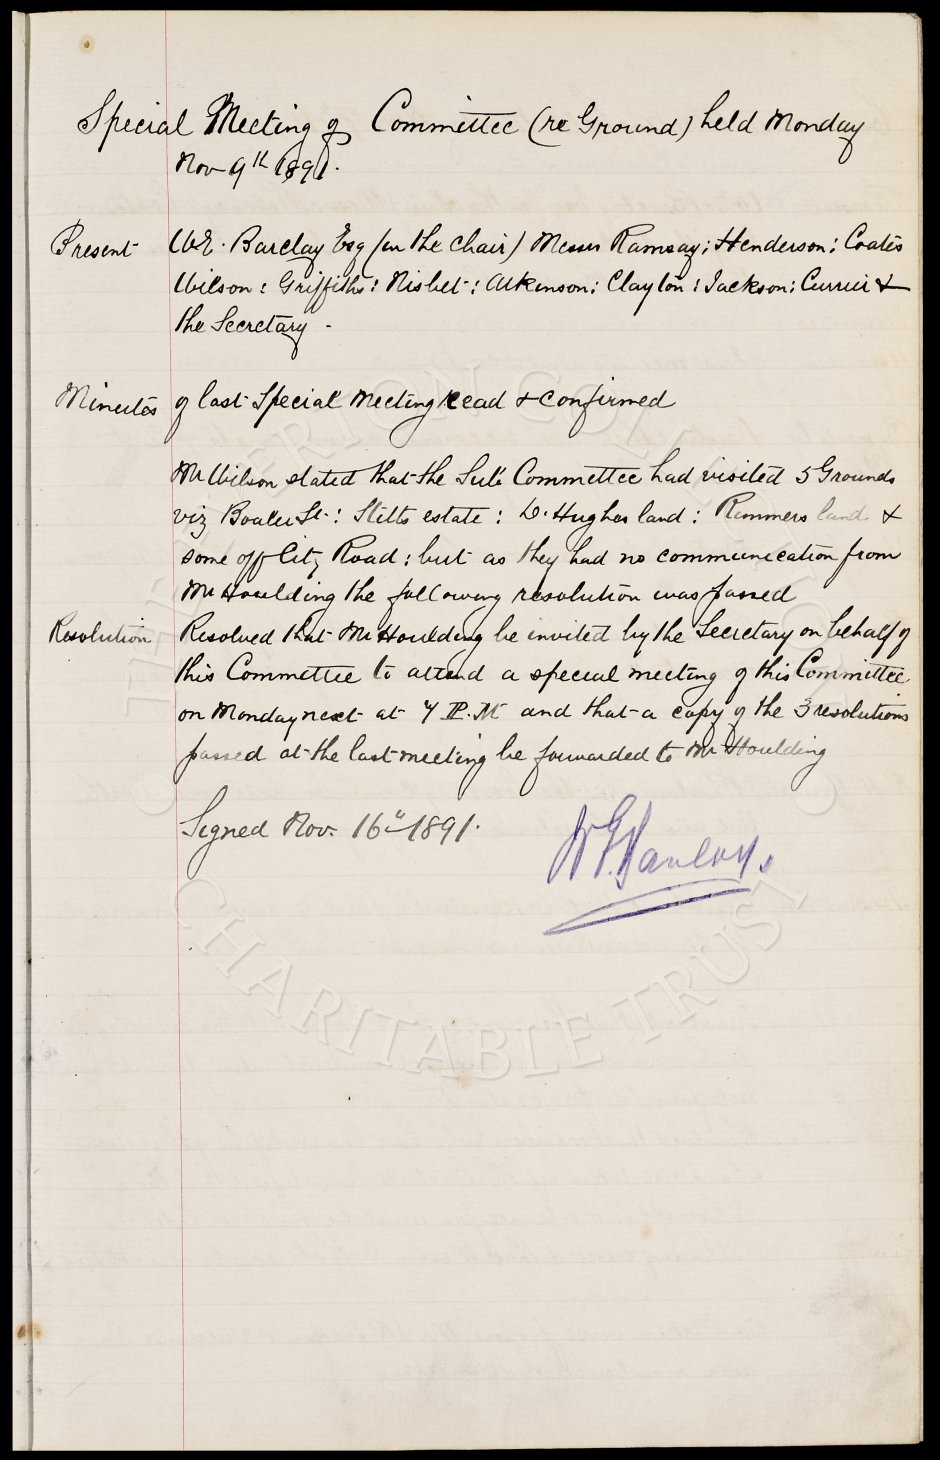 Special Meeting of Committee (re Ground) held Monday
Nov 9th 1891.
Present W.E. Barclay Esq (in the chair) Messrs Ramsay; Henderson; Coates
Wilson: Griffiths: Nisbet: Atkinson: Clayton: Jackson: Currier &
the Secretary -
Minutes of last Special Meeting read & confirmed
Mr Wilson stated that the Sub Committee had visited 5 Grounds
viz Boaler St: Stitts estate: D. Hughes land: Rimmers land &
some off City Road: but as they had no communication from
Mr Houlding the following resolution was passed
Resolution Resolved that Mr Houlding be invited by the Secretary on behalf of
this Committee to attend a special meeting of this Committee
on Monday next at 7 P.M and that a copy of the 3 resolutions
passed at the last meeting be forwarded to Mr Houlding
Signed Nov. 16th 1891.
THE EVERTON COLLECTION
CHARITABLE TRUST